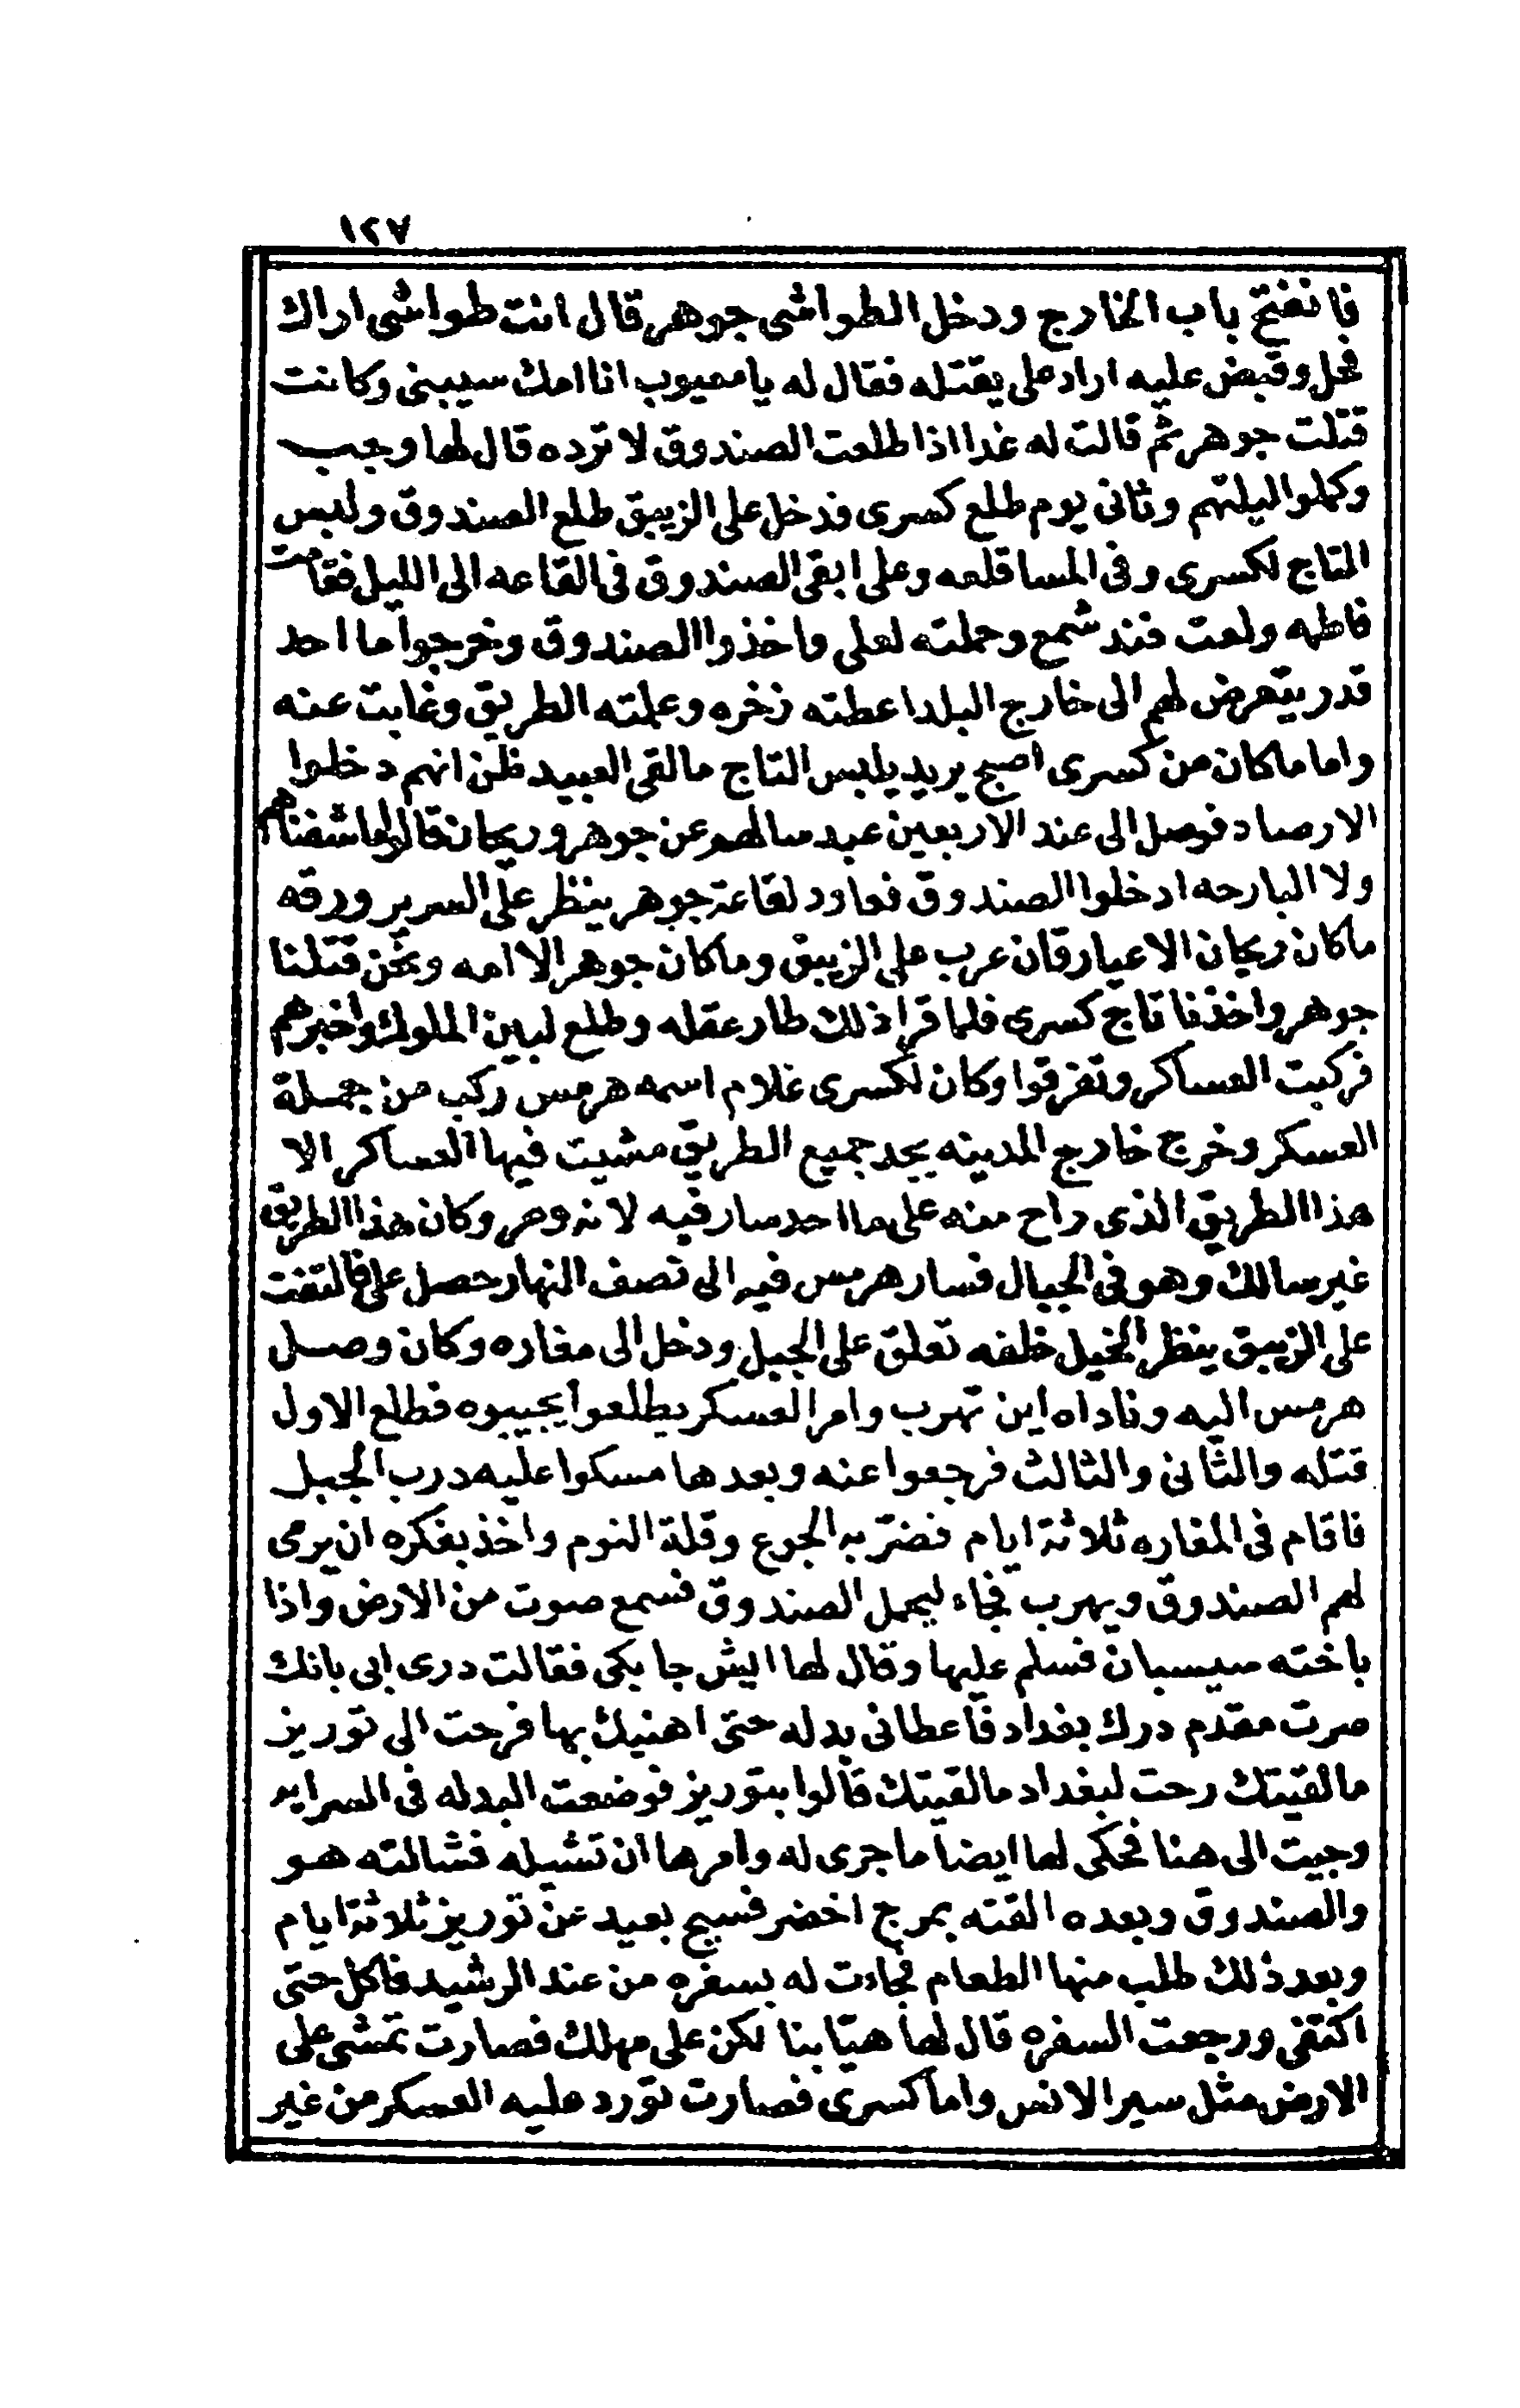 ١٢٧
فانفتح باب الخارج ودخل الطواشى جوهر قال انت طواشى اراك
فحل وقبض عليه اراد على يقتله فقال له يا معيوب انا امك سيبنى وكانت
قتلت جوهر ثم قالت له غدا اذا طلعت الصندوق لا ترده قال لها وجب
وكملوا ليلتهم وثانى يوم طلع كسرى فدخل على الزيبق طلع الصندوق ولبس
التاج لكسرى وفى المسا قلعه وعلى ابقى الصندوق فى القاعه الى الليل فقامت
فاطمه ولعت فند شمع وحملته لعلى واخذوا الصندوق وخرجوا ما احد
قدر يتعرض لهم الى خارج البلد اعطته زخره وعلمته الطريق وغابت عنه
واما ماكان من كسرى اصبح يريد يلبس التاج مالقى العبيد ظن انهم دخلوا
الارصاد فوصل الى عند الاربعين عبد سالهم عن جوهر وريحان قالوا ما شفناهم
ولا البارحه ادخلوا الصندوق فعاود لقاعة جوهر ينظر على السرير ورقه
ماكان ريحان الا عيار قان عرب على الزيبق وماكان جوهر الا امه ونحن قتلنا
جوهر واخذنا تاج كسرى فلما قرا ذلك طار عقله وطلع لبين الملوك واخبرهم
فركبت العساكر وتفرقوا وكان لكسرى غلام اسمه هرمس ركب من جملة
العسكر وخرج خارج المدينه يجد جميع الطريق مشيت فيها العساكر الا
هذا الطريق الذى راح منه على ما احد سار فيه لانه وعر وكان هذا الطريق
غير سالك وهو فى الجبال فسار هرمس فيه الى نصف النهار حصل على فالتفت
على الزيبق ينظر الخيل خلفه تعلق على الجبل ودخل الى مغاره وكان وصل
هرمس اليه وناداه اين تهرب وامر العسكر يطلعوا يجيبوه فطلع الاول
قتله والثانى والثالث فرجعوا عنه وبعدها مسكوا عليه درب الجبل
فاقام فى المغاره ثلاثة ايام فضر به الجوع وقلة النوم واخذ بفكره ان يرمى
لهم الصندوق ويهرب فجاء ليحمل الصندوق فسمع صوت من الارض واذا
باخته سيسبان فسلم عليها وقال لها ايش جا بكى فقالت درى ابى بانك
صرت مقدم درك بغداد فاعطانى بدله حتى اهنيك بها فرحت الى توريز
مالقيتك رحت لبغداد مالقيتك قالوا بتوريز فوضعت البدله فى السرايه
وجيت الى هنا فحكى لها ايضا ما جرى له وامرها ان تشيله فشالته هو
والصندوق وبعده القته بمرج اخضر فسيح بعيد عن توريز ثلاثة ايام
وبعد ذلك طلب منها الطعام فجاءت له بسفره من عند الرشيد فاكل حتى
اكتفى ورجعت السفره قال لها هيا بنا لكن على مهلك فصارت تمشى على
الارض مثل سير الانس واما كسرى فصارت تورد عليه العسكر من غير